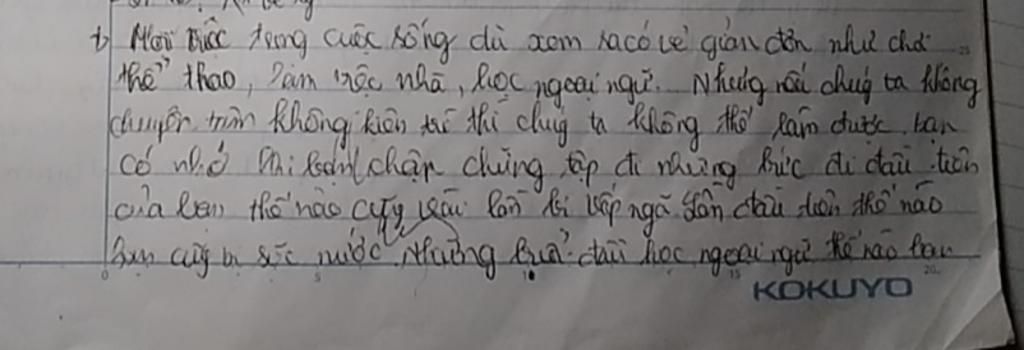 b) Mọi việc trong cuộc sống dù xem ra có vẻ giản đơn như chơi
thể thao, làm việc nhà, học ngoại ngữ. Nhưng nếu chúng ta không
chuyên tâm không kiên trì thì chúng ta không thể làm được. bạn
có nhớ khi chập chững tập đi những bước đi đầu tiên
của bạn thế nào cũng vài lần bị vấp ngã lần đầu tiên thế nào
bạn cũng bị sặc nước. Những đầu học ngoại ngữ thế nào bạn
0 5 10 15 20
KOKUYO